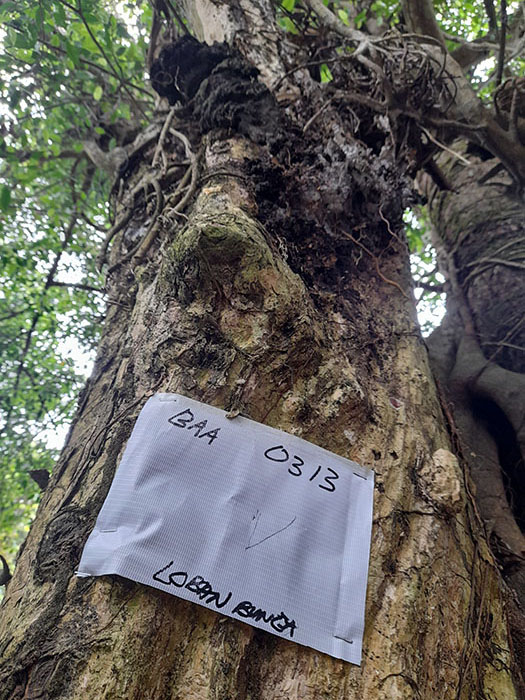 BAA 0313
V
LOBAN BUNGA